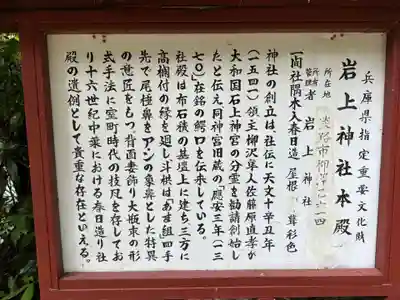 兵庫県指定重要文化財
岩上神社本殿
所在地 淡路市柳澤乙六一四
所有者
管理者 岩上神社
一間社隅木入春日造 屋根 葺彩色
神社の創立は、社伝に天文十辛丑年
(一五四一)領主柳沢隼人佐藤原直孝が
大和国石上神宮の分霊を勧請創始し
たと伝え同神宮旧蔵の「應安三年(一三
七〇)在銘の鰐口を伝来している。
社殿は布石積の基壇上に建ち三方に
高欄付の縁を廻し斗栱は「あま組四手
先で尾棰鼻をアンの象鼻とした特異
の意匠をもつ。背面妻飾り大瓶束の形
式手法に室町時代の技凡を存してお
り十六世紀中葉における春日造り社
殿の遺例として貴重な存在といえる。